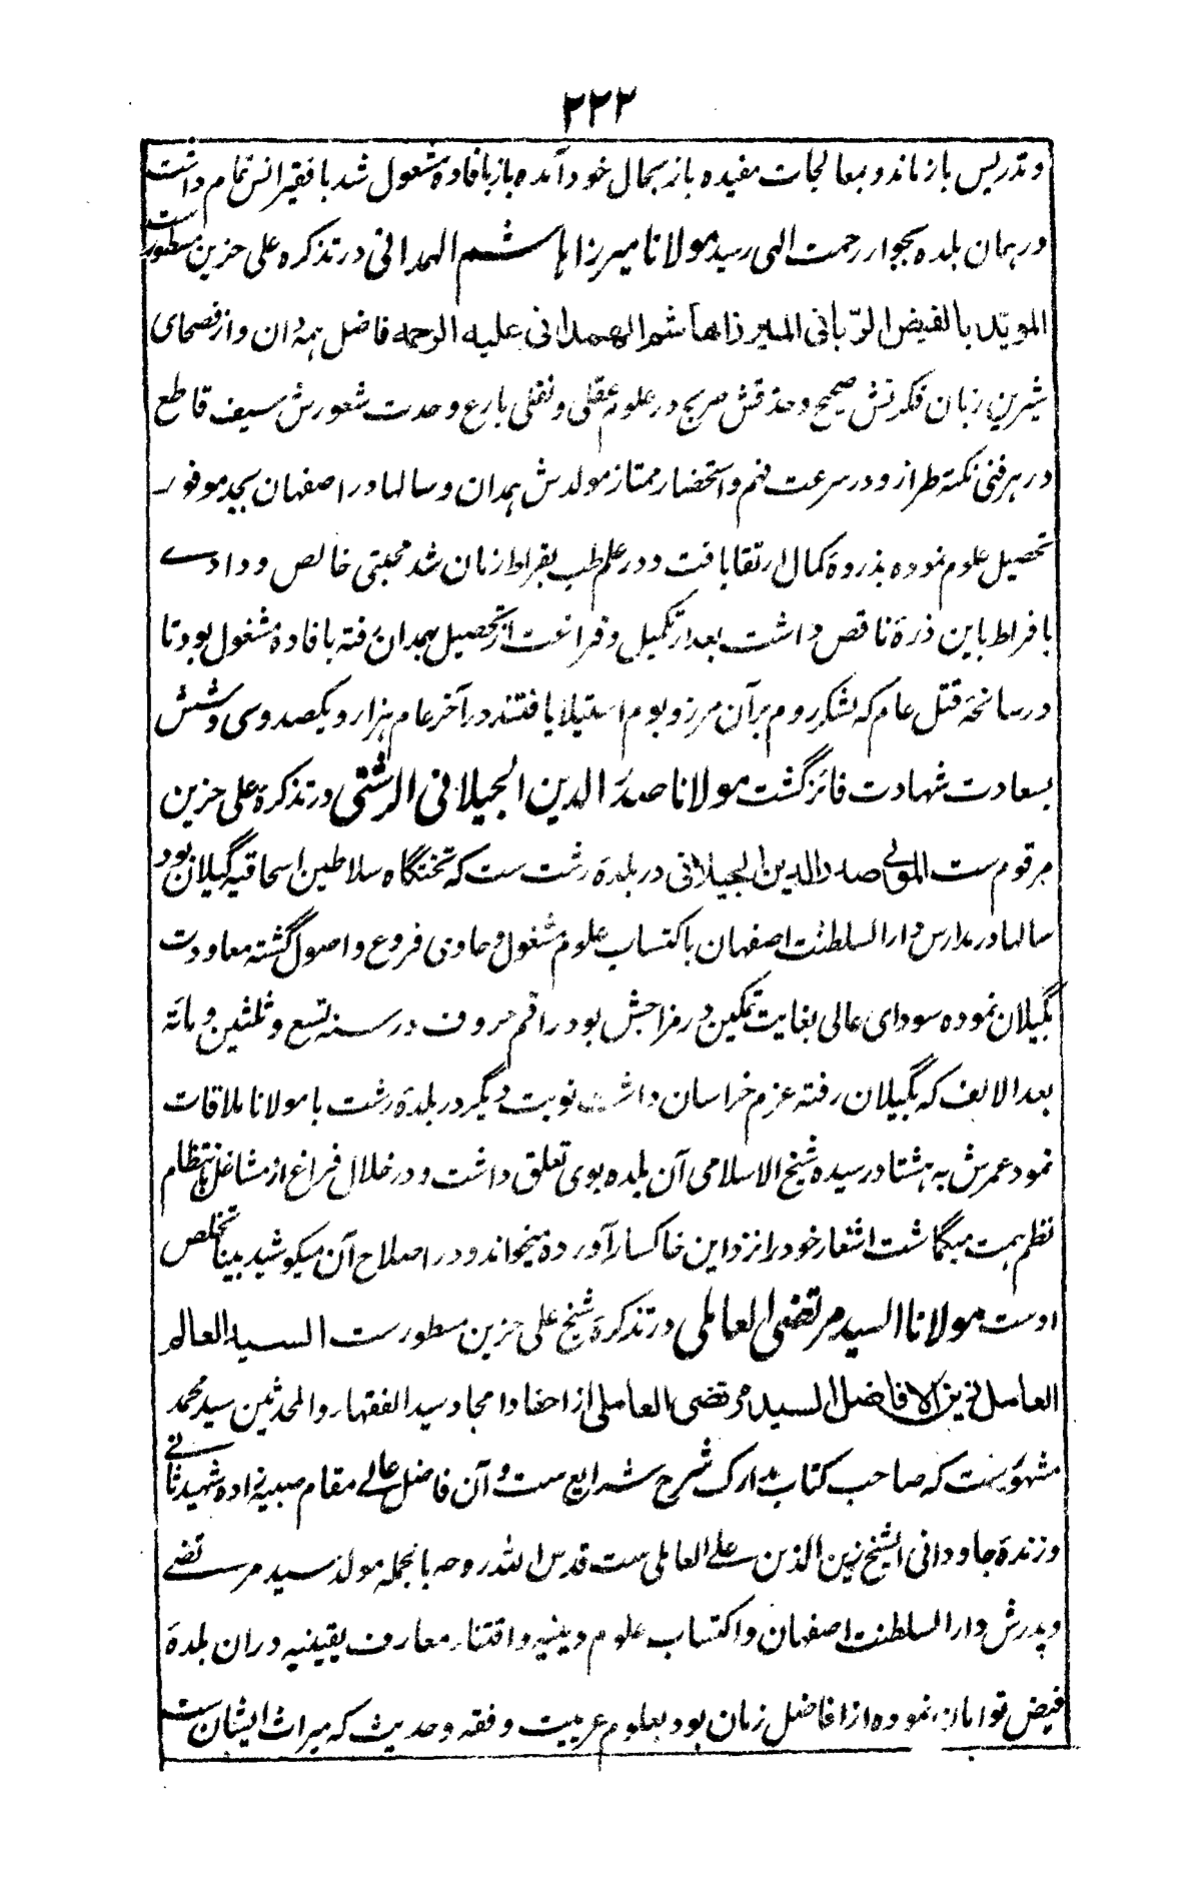 ۲۲۲
و تدریس بازماند و بمعالجات مفیده باز بحال خود آمده باز بافاده مشغول شد با فقیر انس تمام داشت
در همان بلده بجوار رحمت الهی رسید مولانا میرزا هاشم الهمدانی در تذکره علی حزین مسطورست
المویّد بالفیض الرّبانی المیرزا هاشم الهمدانی علیه الرحمه فاضل همه دان و از فصحای
شیرین زبان فکرتش صحیح و حذقش صریح در علوم عقلی و نقلی بارع و حدت شعورش سیف قاطع
در هر فنی نکته طراز و در سرعت فهم و استحضار ممتاز مولدش همدان و سالها در اصفهان بجد موفور
تحصیل علوم نموده بذروهٔ کمال ارتقا یافت و در علم طب بقراط زمان شد محبتی خالص و دادے
بافراط باین ذرهٔ ناقص داشت بعد از تکمیل و فراغت از تحصیل بهمدان رفته بافاده مشغول بود تا
در سانحهٔ قتل عام که لشکر روم بر آن مرز و بوم استیلا یافتند در آخر عام هزار و یکصد و سی و شش
بسعادت شهادت فائز گشت مولانا صدر الدین الجیلانی الرشتی در تذکرهٔ علی حزین
مرقوم ست المولی صدر الدین الجیلانی در بلدهٔ رشت ست که تختگاه سلاطین اسحاقیهٔ گیلان بود
سالها در مدارس دار السلطنت اصفهان باکتساب علوم مشغول و حاوی فروع و اصول گشته معاودت
بگیلان نموده سودای عالی بغایت تمکین در مزاجش بود راقم حروف در سنه تسع و ثلثین و مائة
بعد الالف که بگیلان رفته عزم خراسان داشت نوبت دیگر در بلدهٔ رشت با مولانا ملاقات
نمود عمرش به هشتاد رسیده شیخ الاسلامی آن بلده بوی تعلق داشت و در خلال فراغ از مشاغل بانتظام
نظم همت میگماشت اشعار خود را نزد این خاکسار آورده میخواند و در اصلاح آن میکوشید بینا تخلص
اوست مولانا السید مرتضی العاملی در تذکرهٔ شیخ علی حزین مسطورست السید العالم
العامل زین الافاضل السید مرتضی العاملی از احفاد امجاد سید الفقهاء و المحدثین سید محمد
مشهورست که صاحب کتاب مدارک شرح شرایع ست و آن فاضل عالے مقام صبیه زاده شهید ثانے
و زندهٔ جاودانی الشیخ زین الدین علے العاملی ست قدس الله روحه بالجمله مولد سید مرتضے
و پدرش دار السلطنت اصفهان و اکتساب علوم دینیه و اقتناء معارف یقینیه دران بلدهٔ
فیض توامان نموده از افاضل زمان بود بعلوم عربیت و فقه و حدیث که میراث ایشان ست